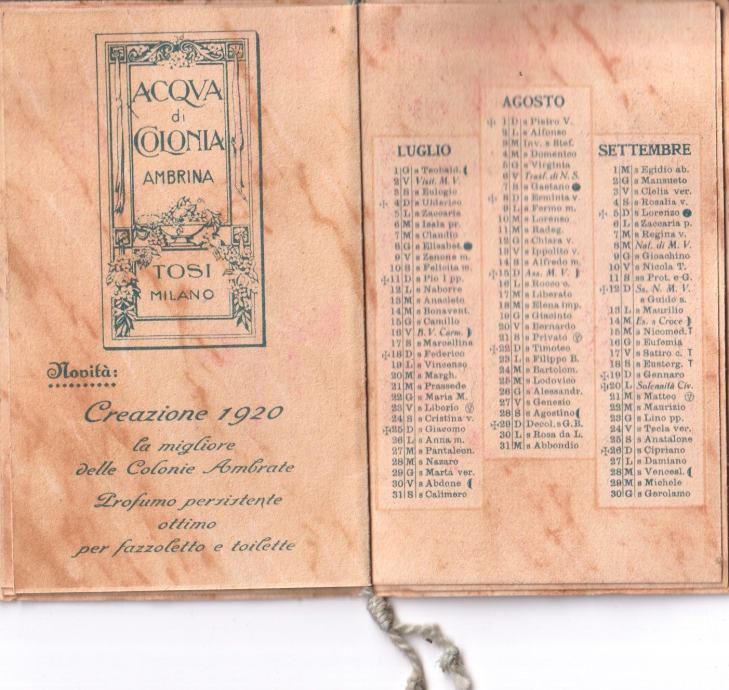 ACQVA
di
COLONIA
AMBRINA
TOSI
MILANO
Novità:
Creazione 1920
la migliore
delle Colonie Ambrate
Profumo persistente
ottimo
per fazzoletto e toilette
LUGLIO
1 G s Teobald.
2 V Visit. M. V.
3 S s Eulogio
✠ 4 D s Ulderico
5 L s Zaccaria
6 M s Isaia pr.
7 M s Claudio
8 G s Elisabet.
9 V s Zenone m.
10 S s Felicita m.
✠11 D s Pio I pp.
12 L s Naborre
13 M s Anacleto
14 M s Bonavent.
15 G s Camillo
16 V B. V. Carm.
17 S s Marcellina
✠18 D s Federico
19 L s Vincenso
20 M s Margh.
21 M s Prassede
22 G s Maria M.
23 V s Liborio
24 S s Cristina v.
✠25 D s Giacomo
26 L s Anna m.
27 M s Pantaleon.
28 M s Nazaro
29 G s Marta ver.
30 V s Abdone
31 S s Calimero
AGOSTO
✠ 1 D s Pietro V.
2 L s Alfonso
3 M Inv. s Stef.
4 M s Domenico
5 G s Virginia
6 V Trasf. di N. S.
7 S s Gaetano
✠ 8 D s Erminia v.
9 L s Fermo m.
10 M s Lorenzo
11 M s Radeg.
12 G s Chiara v.
13 V s Ippolito v.
14 S s Alfredo m.
✠15 D Ass. M. V.
16 L s Rocco c.
17 M s Liberato
18 M s Elena imp.
19 G s Giacinto
20 V s Bernardo
21 S s Privato
✠22 D s Timoteo
23 L s Filippo B.
24 M s Bartolom.
25 M s Lodovico
26 G s Alessandr.
27 V s Genesio
28 S s Agostino
✠29 D Decol. s G.B.
30 L s Rosa da L.
31 M s Abbondio
SETTEMBRE
1 M s Egidio ab.
2 G s Mansueto
3 V s Clelia ver.
4 S s Rosalia v.
✠ 5 D s Lorenzo
6 L s Zaccaria p.
7 M s Regina v.
8 M Nat. di M. V.
9 G s Gioachino
10 V s Nicola T.
11 S ss Prot. e G.
✠12 D Ss. N. M. V.
s Guido s.
13 L s Maurilio
14 M Es. s Croce
15 M s Nicomed. T
16 G s Eufemia
17 V s Satiro c. T
18 S s Eustorg. T
✠19 D s Gennaro
✠20 L Solennità Civ.
21 M s Matteo
22 M s Maurizio
23 G s Lino pp.
24 V s Tecla ver.
25 S s Anatalone
✠26 D s Cipriano
27 L s Damiano
28 M s Vencesl.
29 M s Michele
30 G s Gerolamo